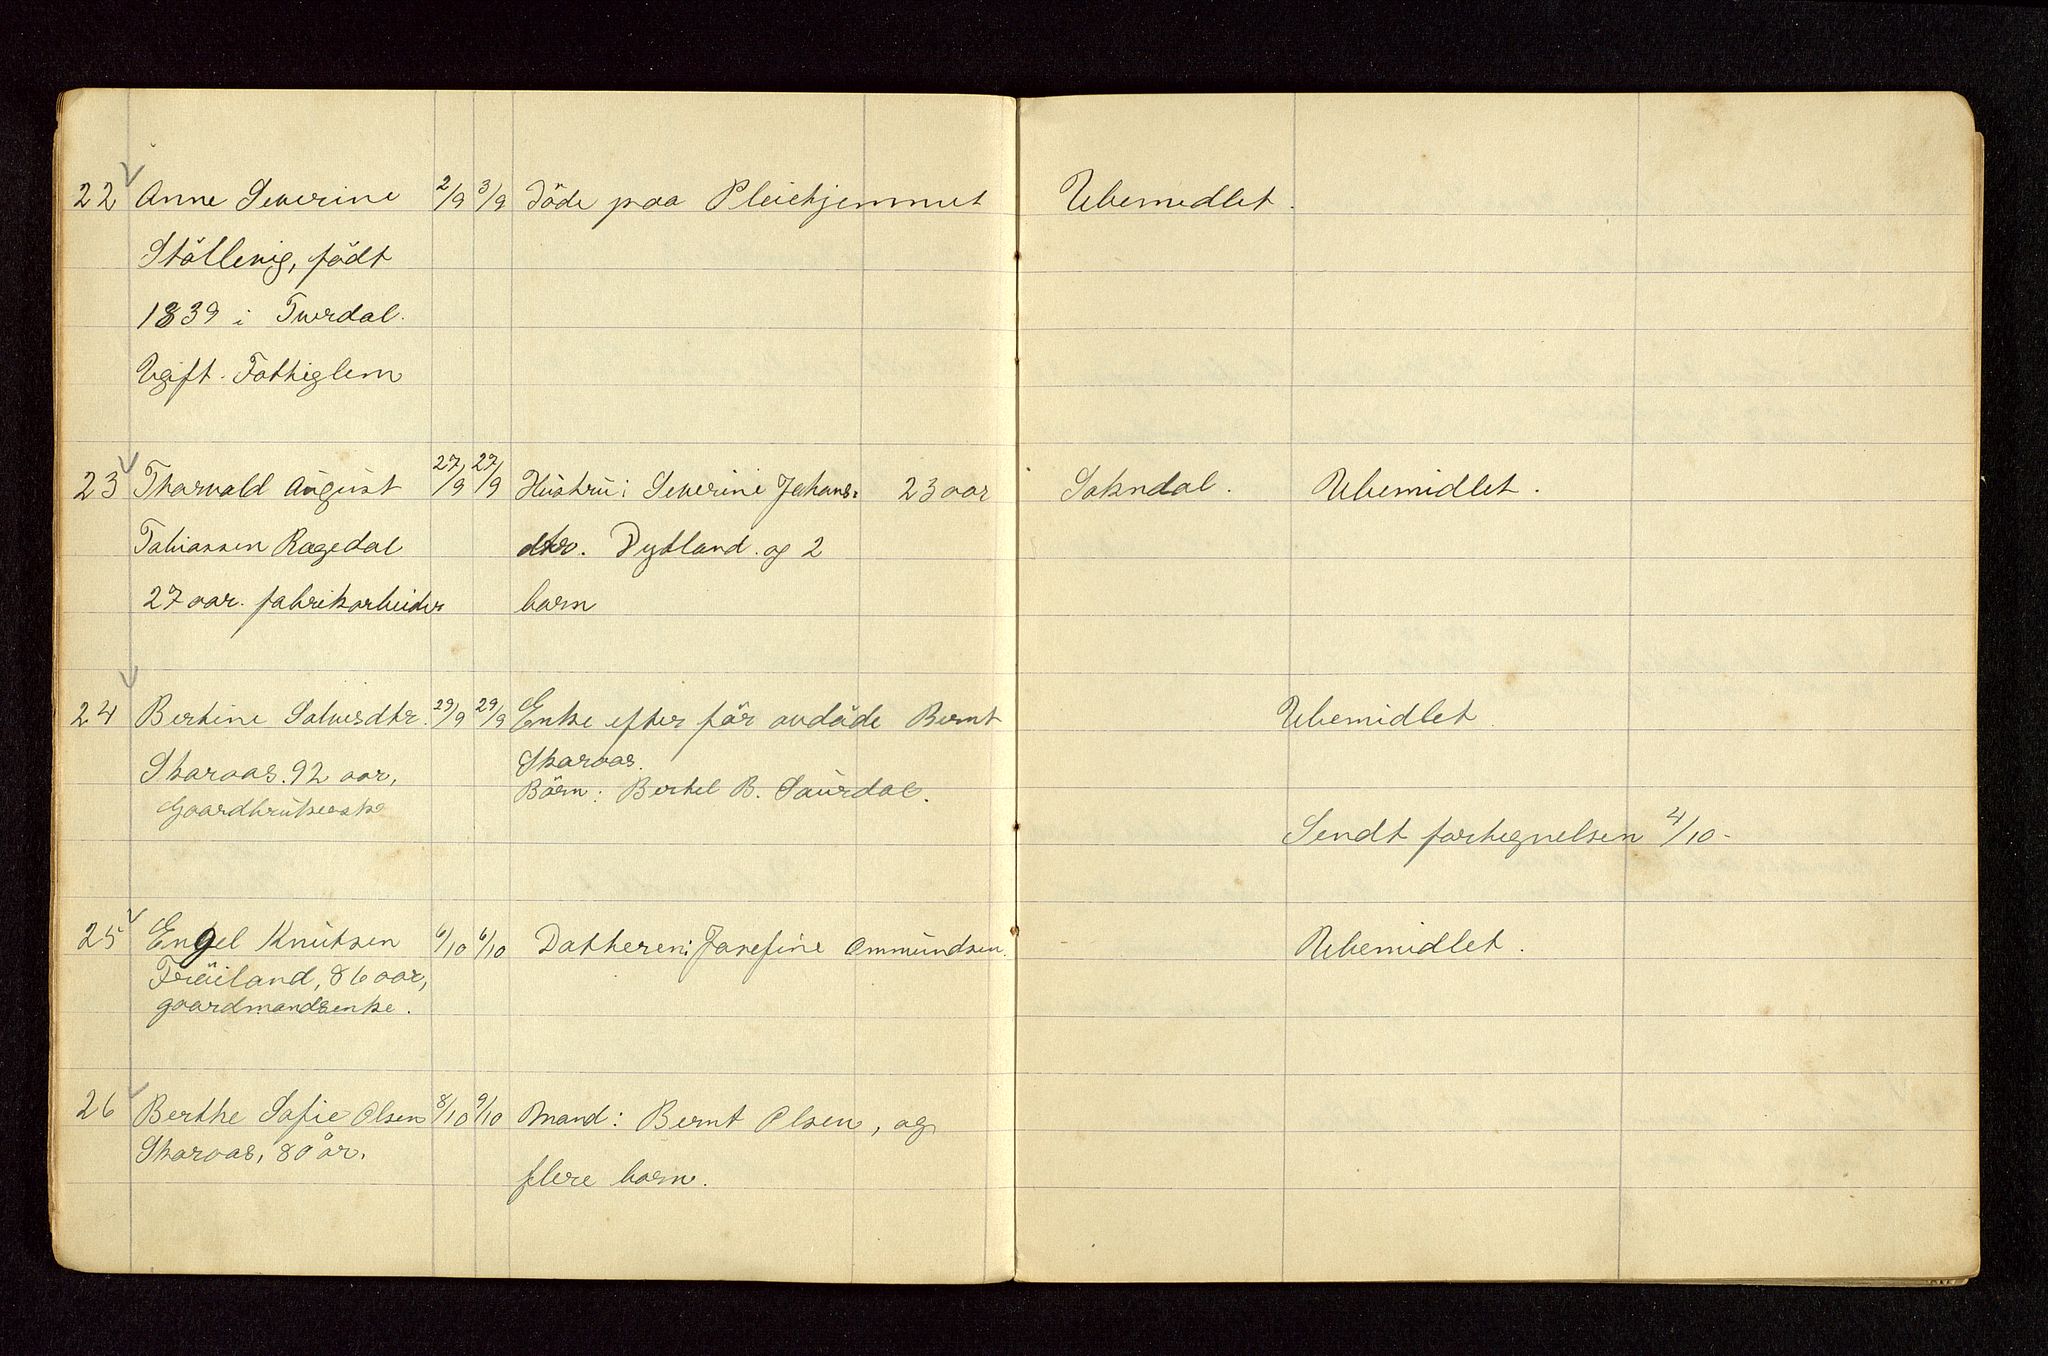 22 Anne Severine 2/9 3/9 Döde paa Pleiehjemmet Ubemedlet.
Stöllevig, född
1839 i Tverdal.
Ugift. Fattiglem
23 Thorvald August 27/9 27/9 Hustru: Severine Johans- 23 aar Sokndal. Ubemidlet.
Tobiassen Rægedal dtr. Dydland. og 2
27 aar. fabrikarbeider barn
24 Bertine Salvesdtr. 29/9 29/9 Enke efter för avdöde Bernt Ubemidlet.
Skaraas. 92 aar, Skaraas.
Gaardbrukerske Börn: Bertel B. Saurdal.
Sendt fortegnelsen 4/10-
25 Engel Knutsen 6/10 6/10 Datteren: Josefine Ommundsen. Ubemidlet.
Fröiland, 86 aar,
gaardmandsenke.
26 Berthe Sofie Olsen 8/10 9/10 Mand: Bernt Olsen, og
Skaraas, 80 år. flere barn.